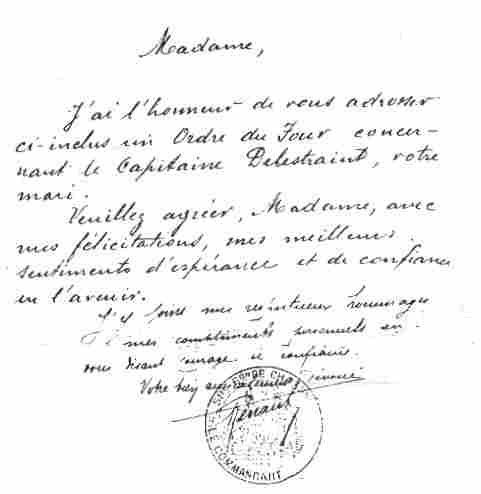 Madame,
J'ai l'honneur de vous adresser
ci-inclus un Ordre du Jour concer-
nant le Capitaine Delestraint, votre
mari.
Veuillez agréer, Madame, avec
mes félicitations, mes meilleurs
sentiments d'espérance et de confiance
en l'avenir.
J'y joins mes respectueux hommages
et mes compliments personnels en
vous disant courage et confiance.
Votre bien
Renaut
LE COMMANDANT